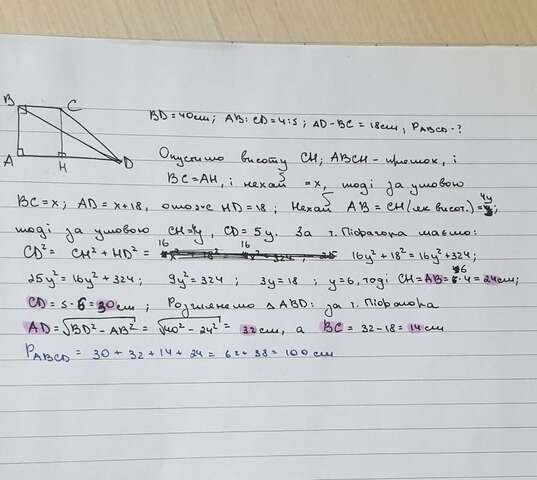 B C
A H D
BD = 40см; AB:CD = 4:5; AD - BC = 18см, PABCD - ?
Опустимо висоту CH; ABCH - прямок, і
BC = AH, і нехай = x, тоді за умовою
BC = x; AD = x+18, отже HD = 18; Нехай AB = CH (як висот.) = 4y;
тоді за умовою CH = 4y, CD = 5y. За т. Піфагора маємо:
CD² = CH² + HD² = 16y² + 18² = 16y² + 324;
25y² = 16y² + 324; 9y² = 324; 3y = 18; y = 6, тоді CH = AB = 6·4 = 24см;
CD = 5·6 = 30см; Розглянемо ΔABD: за т. Піфагора
AD = √BD² - AB² = √40² - 24² = 32см, а BC = 32 - 18 = 14см
PABCD = 30 + 32 + 14 + 24 = 62 + 38 = 100см